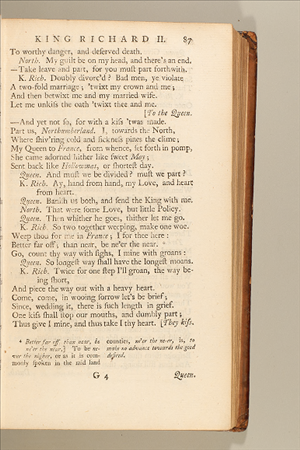 KING RICHARD II. 87
To worthy danger, and deserved death.
North. My guilt be on my head, and there's an end.
—Take leave and part, for you must part forthwith.
K. Rich. Doubly divorc'd ? Bad men, ye violate
A two-fold marriage; 'twixt my crown and me;
And then betwixt me and my married wife.
Let me unkiss the oath 'twixt thee and me.
[To the Queen.
—And yet not so, for with a kiss 'twas made.
Part us, Northumberland. I, towards the North,
Where shiv'ring cold and sickness pines the clime;
My Queen to France, from whence, set forth in pomp,
She came adorned hither like sweet May;
Sent back like Hollowmas, or shortest day.
Queen. And must we be divided? must we part?
K. Rich. Ay, hand from hand, my Love, and heart
from heart.
Queen. Banish us both, and send the King with me.
North. That were some Love, but little Policy.
Queen. Then whither he goes, thither let me go.
K. Rich. So two together weeping, make one woe.
Weep thou for me in France; I for thee here:
Better far off, than near, be ne'er the near. *
Go, count thy way with sighs, I mine with groans:
Queen. So longest way shall have the longest moans.
K. Rich. Twice for one step I'll groan, the way be-
ing short,
And piece the way out with a heavy heart.
Come, come, in wooing sorrow let's be brief;
Since, wedding it, there is such length in grief.
One kiss shall stop our mouths, and dumbly part;
Thus give I mine, and thus take I thy heart. [They kiss.
* Better far off than near, be
ne'er the near.] To be ne-
ver the nigher, or as it is com-
monly spoken in the mid land
counties, ne'er the ne-er, is, to
make no advance towards the good
desired.
G 4
Queen.